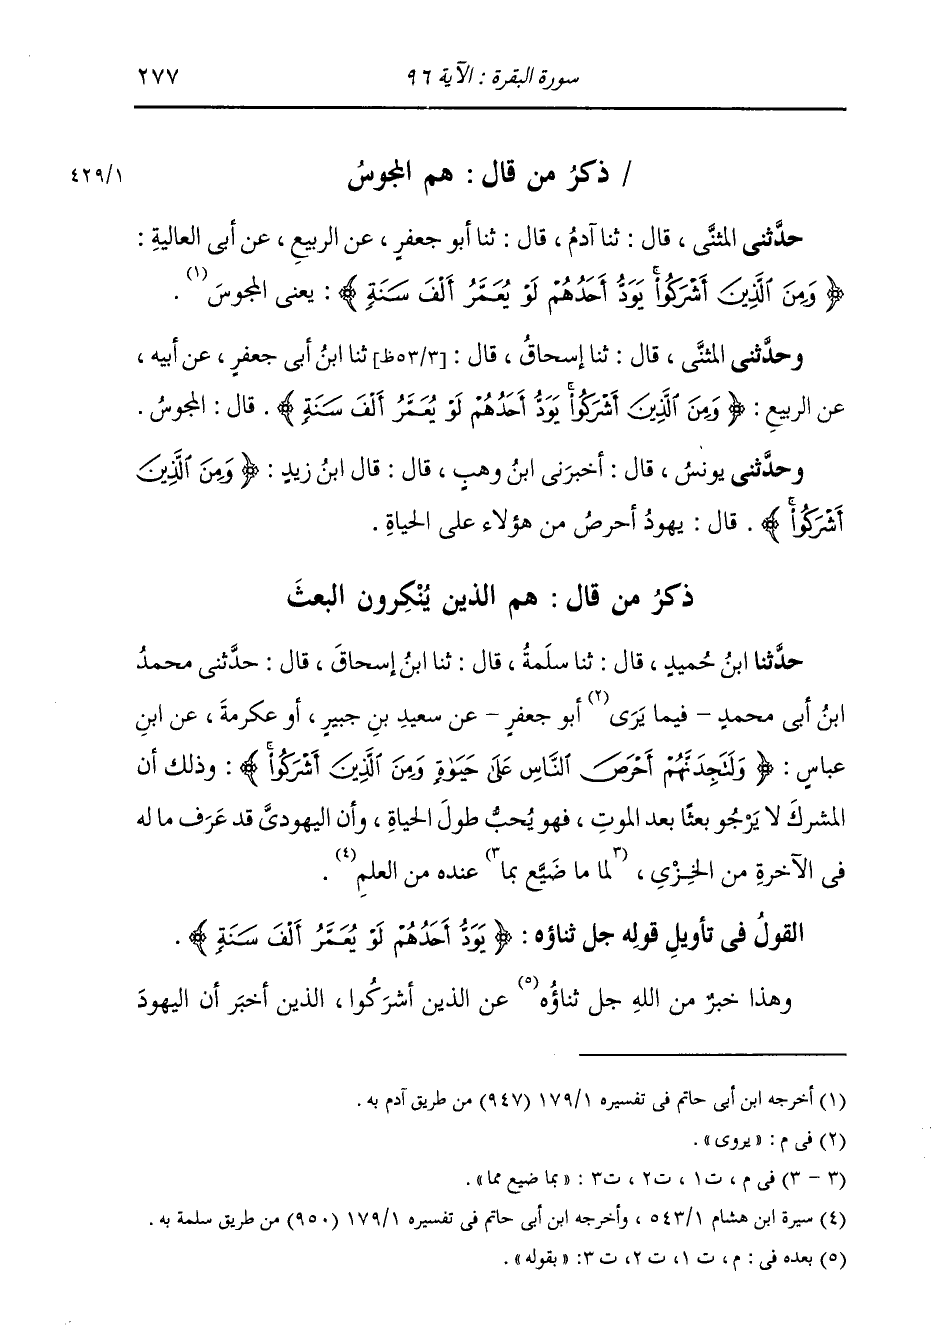 سورة البقرة : الآية ٩٦
٢٧٧
/ ذكرُ من قال : هم المجوسُ
٤٢٩/١
حدَّثنى المثنَّى ، قال : ثنا آدمُ ، قال : ثنا أبو جعفرٍ ، عن الربيعِ ، عن أبى العاليةِ :
﴿ وَمِنَ ٱلَّذِينَ أَشْرَكُواْۚ يَوَدُّ أَحَدُهُمْ لَوْ يُعَمَّرُ أَلْفَ سَنَةٍ ﴾ : يعنى المجوسَ(١) .
وحدَّثنى المثنَّى ، قال : ثنا إسحاقُ ، قال : [٥٣/٣ظ] ثنا ابنُ أبى جعفرٍ ، عن أبيه ،
عن الربيعِ : ﴿ وَمِنَ ٱلَّذِينَ أَشْرَكُواْۚ يَوَدُّ أَحَدُهُمْ لَوْ يُعَمَّرُ أَلْفَ سَنَةٍ ﴾ . قال : المجوسُ .
وحدَّثنى يونسُ ، قال : أخبرَنى ابنُ وهبٍ ، قال : قال ابنُ زيدٍ : ﴿ وَمِنَ ٱلَّذِينَ
أَشْرَكُواْۚ ﴾ . قال : يهودُ أحرصُ من هؤلاء على الحياةِ .
ذكرُ من قال : هم الذين يُنْكِرون البعثَ
حدَّثنا ابنُ حُميدٍ ، قال : ثنا سلَمةُ ، قال : ثنا ابنُ إسحاقَ ، قال : حدَّثنى محمدُ
ابنُ أبى محمدٍ – فيما يَرَى(٢) أبو جعفرٍ – عن سعيدِ بنِ جبيرٍ ، أو عكرمةَ ، عن ابنِ
عباسٍ : ﴿ وَلَتَجِدَنَّهُمْ أَحْرَصَ ٱلنَّاسِ عَلَىٰ حَيَوٰةٍ وَمِنَ ٱلَّذِينَ أَشْرَكُواْۚ ﴾ : وذلك أن
المشركَ لا يَرْجُو بعثًا بعد الموتِ ، فهو يُحبُّ طولَ الحياةِ ، وأن اليهودىَّ قد عَرَف ما له
فى الآخرةِ من الخِزْىِ ، (٣لما ما ضَيَّع بما٣) عنده من العلمِ(٤) .
القولُ فى تأويلِ قولِه جل ثناؤه : ﴿ يَوَدُّ أَحَدُهُمْ لَوْ يُعَمَّرُ أَلْفَ سَنَةٍ ﴾ .
وهذا خبرٌ من اللهِ جل ثناؤُه(٥) عن الذين أشرَكُوا ، الذين أخبَر أن اليهودَ
(١) أخرجه ابن أبى حاتم فى تفسيره ١٧٩/١ (٩٤٧) من طريق آدم به .
(٢) فى م : « يروى » .
(٣ – ٣) فى م ، ت١ ، ت٢ ، ت٣ : « بما ضيع مما » .
(٤) سيرة ابن هشام ٥٤٣/١ ، وأخرجه ابن أبى حاتم فى تفسيره ١٧٩/١ (٩٥٠) من طريق سلمة به .
(٥) بعده فى : م ، ت ١، ت ٢، ت ٣: « بقوله » .